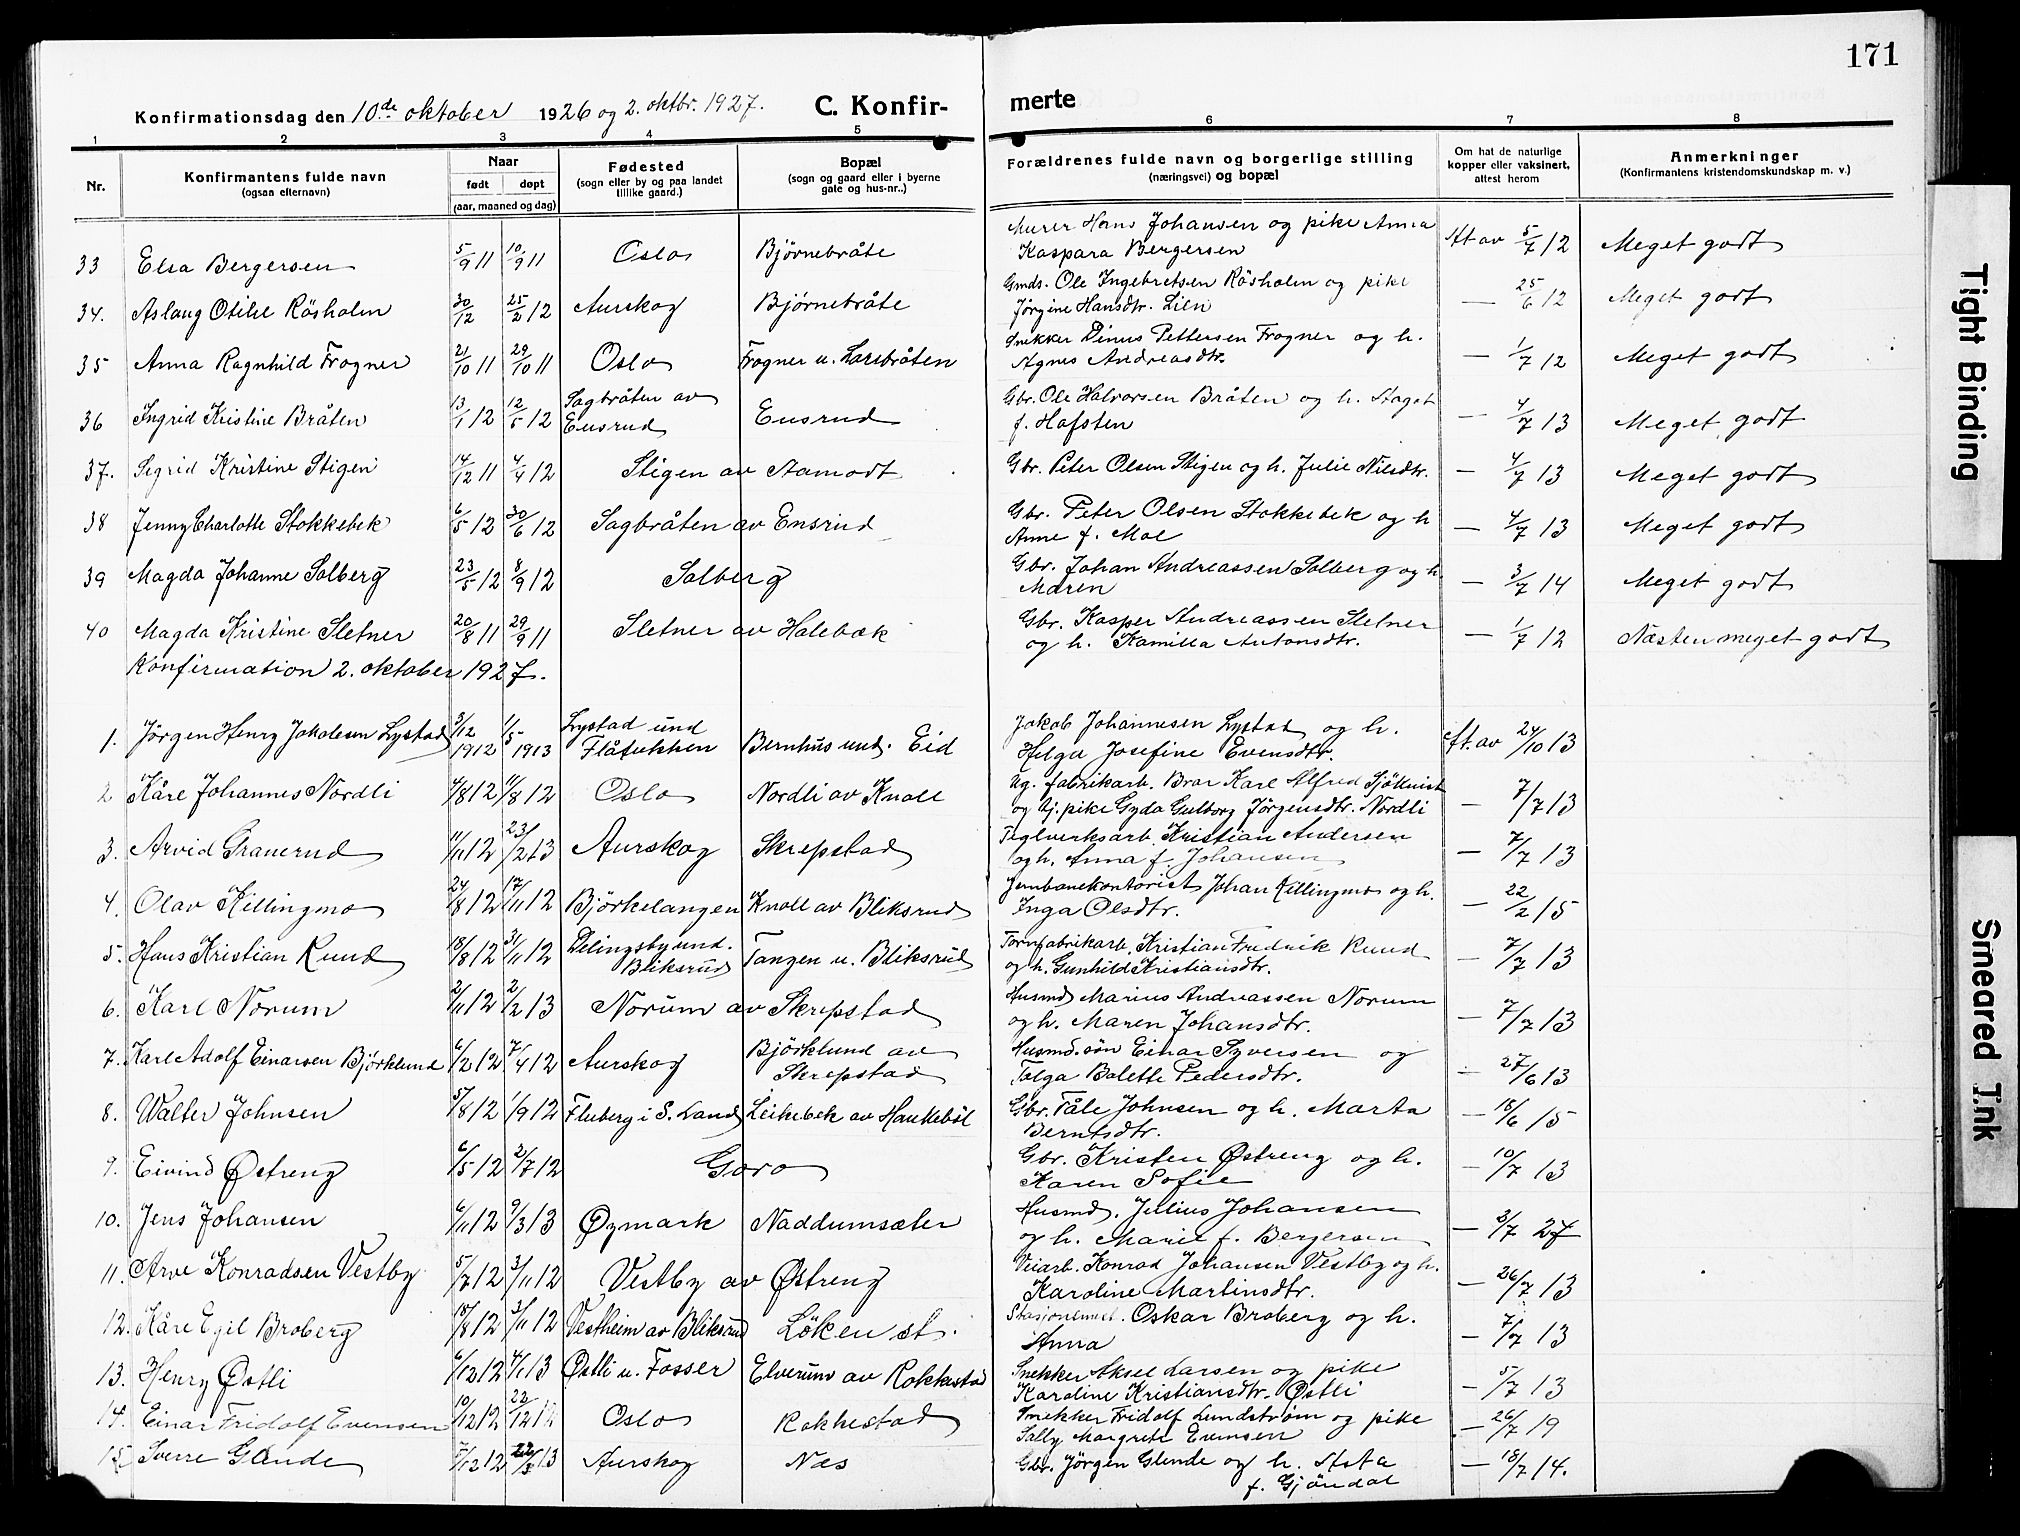 171
Konfirmationsdag den 10de oktober 1926 og 2. oktbr. 1927. C. Konfir-
merte
1 2 3 4 5 6 7 8
Nr.
Konfirmantens fulde navn
(ogsaa efternavn)
Naar
født døpt
(aar, maaned og dag)
Fødested
(sogn eller by og paa landet
tillike gaard.)
Bopæl
(sogn og gaard eller i byerne
gate og hus-nr..)
Forældrenes fulde navn og borgerlige stilling
(næringsvei) og bopæl
Om hat de naturlige
kopper eller vaksinert,
attest herom
Anmerkninger
(Konfirmantens kristendomskundskap m. v.)
33 Elsa Bergersen 5/9 11 10/9 11 Oslo Bjørnebråte Murer Hans Johansen og pike Anna
Kaspara Bergersen At av 5/7 12 Meget godt
34. Aslaug Otilie Røsholm 30/12 25/2 12 Aurskog Bjørnebråte Gmds. Ole Ingebretsen Røsholm og pike
Jørgine Hansdtr. Lien — 25/6 12 Meget godt
35 Anna Ragnhild Frogner 21/10 11 29/10 11 Oslo Frogner u. Larsbråten Snekker Dinus Pettersen Frogner og h.
Agnes Andreasdtr. — 1/7 12 Meget godt
36 Ingrid Kristine Bråten 13/1 12 12/5 12 Sagbråten av
Ensrud Ensrud Gbr. Ole Halvorsen Bråten og h.
f. Hofsten — 4/7 13 Meget godt
37. Sigrid Kristine Stigen 14/12 11 4/4 12 Stigen av Aamodt Gbr. Peter Olsen Stigen og h. Julie Nilsdtr. — 4/7 13 Meget godt
38 Jenny Charlotte Stokkebek 6/5 12 30/6 12 Sagbråten av Ensrud Gbr. Peter Olsen Stokkebek og h
Anne f. Moe — 4/7 13 Meget godt
39 Magda Johanne Solberg 23/5 12 8/9 12 Solberg Gbr. Johan Andreassen Solberg og h.
Maren — 3/7 14 Meget godt
40 Magda Kristine Sletner 20/8 11 29/9 11 Sletner av Halebæk Gbr. Kasper Andreassen Sletner
og h. Kamilla Antonsdtr. — 1/7 12 Næsten meget godt
Konfirmation 2. oktober 1927.
1. Jørgen Henry Jakobsen Lystad 3/12 1912 1/5 1913 Lystad und
Flåtukken Bernhus und. Eid Jakob Johannesen Lystad og h.
Helga Josefine Evensdtr. At. av 24/10 13
2 Kåre Johannes Nordli 4/8 12 11/8 12 Oslo Nordli av Knoll Ug. fabrikarb. Bror Karl Alfred Sjökvist
og Uj. pike Gyda Gulborg Jørgensdtr. Nordli — 7/7 13
3. Arvid Granerud 11/11 12 23/2 13 Aurskog Skrepstad Teglverksarb. Kristian Andersen
og h. Anna f. Johansen — 7/7 13
4. Olav Killingmo 24/8 12 17/11 12 Björkelangen Knoll av Bliksrud Jernbanekontorist Johan Killingmo og h.
Inga Olsdtr. — 22/2 15
5. Hans Kristian Ruud 18/8 12 3/11 12 Delingsby und.
Bliksrud Tangen u. Bliksrud Torvfabrikarb. Kristian Fredrik Ruud
og h. Gunhild Kristiansdtr. — 7/7 13
6. Karl Norum 2/11 12 2/2 13 Norum av Skrepstad Husmd Marius Andreassen Norum
og h. Maren Johansdtr. — 7/7 13
7. Karl Adolf Einarsen Björklund 6/2 12 7/4 12 Aurskog Björklund av
Skrepstad Husmd. søn Einar Syversen og
Tolga Balette Pedersdtr. — 27/6 13
8. Walter Johnsen 5/8 12 1/9 12 Fluberg i S. Land Leikebek av Haukebøl Gbr. Tåle Johnsen og h. Marta
Berntsdtr. — 18/6 15
9. Eivind Østreng 6/5 12 2/7 12 Goro Gbr. Kristen Østreng og h.
Karen Sofie — 10/7 13
10. Jens Johansen 6/11 12 9/3 13 Øymark Naddumsæter Husmd. Julius Johansen
og h. Marie f. Bergersen — 2/7 27
11. Arve Konradsen Vestby 5/7 12 3/11 12 Vestby av Østreng Veiarb. Konrad Johansen Vestby og h.
Karoline Martinsdtr. — 26/7 13
12. Kåre Egil Broberg 18/8 12 3/11 12 Vestheim av Bliksrud Löken st. Oskar Broberg og h.
Anna — 7/7 13
13. Henry Østli 6/12 12 4/1 13 Østli u. Fosser Elverum av Rokkestad Snekker Aksel Larsen og pike
Karoline Kristiansdtr. Østli — 5/7 13
14. Einar Fridolf Evensen 10/12 12 22/12 12 Oslo Rokkestad Snekker Fridolf Lundstrøm og pike
Sally Margrete Evensen — 26/7 19
15 Sverre Glende 7/12 12 13 Aurskog Næs Gbr. Jørgen Glende og h. Asta
f. Gjöndal — 18/7 14.
Tight Binding
Smeared Ink